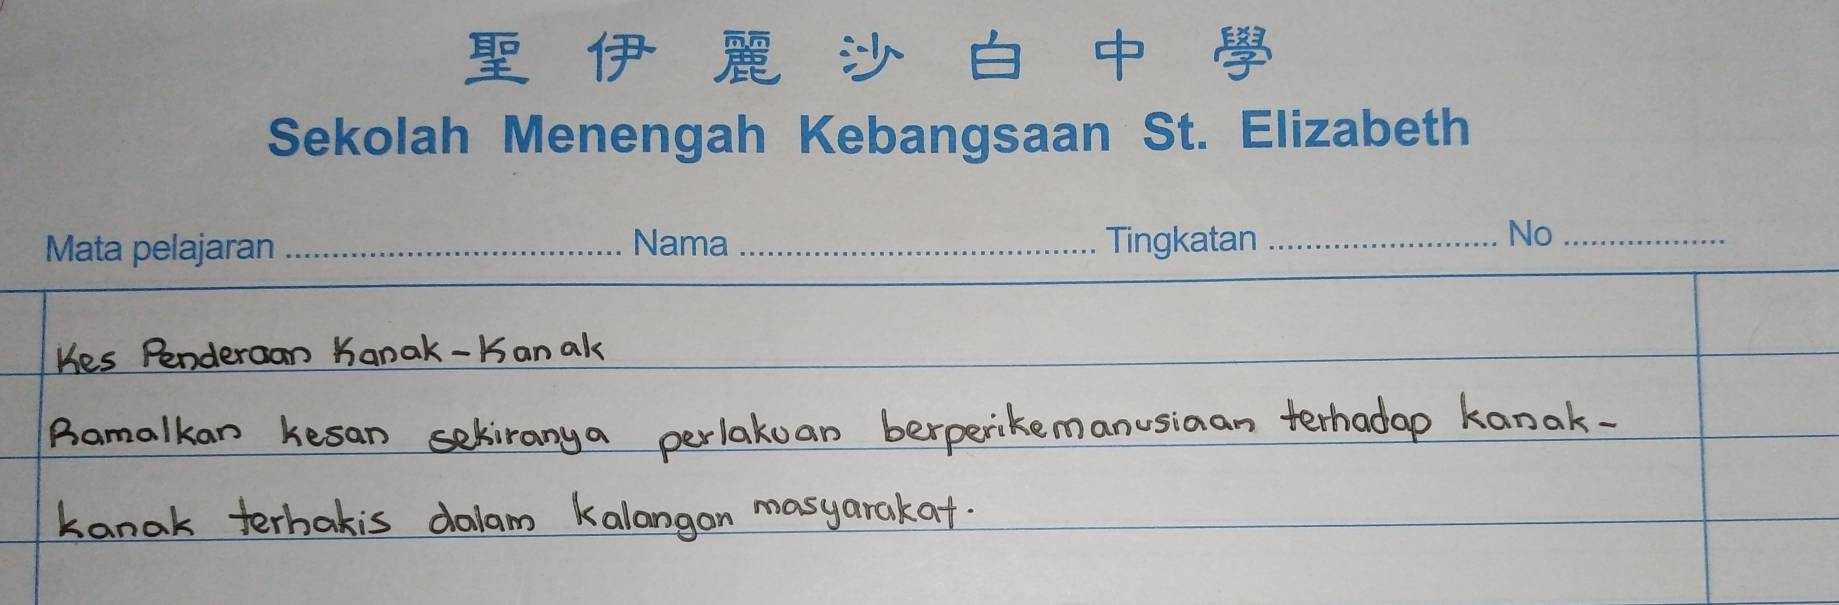 聖伊麗沙白中學
Sekolah Menengah Kebangsaan St. Elizabeth
Mata pelajaran .................................... Nama ...................................... Tingkatan ......................... No ..................
Kes Penderaan Kanak-Kanak
Ramalkan kesan sekiranya perlakuan berperikemanusiaan terhadap kanak-
kanak terhakis dalam kalangan masyarakat.